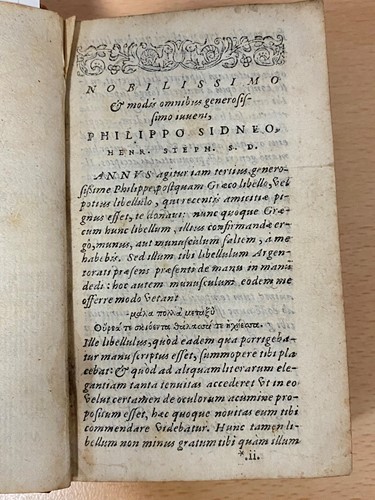 NOBILISSIMO
& modis omnibus generosis-
simo iuveni,
PHILIPPO SIDNEO,
HENR. STEPH. S. D.
ANNVS agitur iam tertius, genero-
sissime Philippe, postquam Græco libello, vel
potius libellulo, qui recentis amicitiæ pi-
gnus esset, te donavi: nunc quoque Græ-
cum hunc libellum, illius confirmandæ er-
gò, munus, aut munusculum saltem, a me
habebis. Sed illum tibi libellulum Argen-
torati præsens præsenti de manu in manū
dedi: hoc autem munusculum eodem me
offerre modo vetant
μάλα πολλὰ μεταξὺ
Οὔρεά τε σκιόεντα θάλασσά τε ἠχήεσσα.
Ille libellulus, quòd eadem qua porrigeba-
tur manu scriptus esset, summopere tibi pla
cebat: & quòd ad aliquam literarum ele-
gantiam tanta tenuitas accederet vt in eo
velut certamen de oculorum acumine pro-
positum esset, hæc quoque novitas eum tibi
commendare videbatur. Hunc tamen li-
bellum non minus gratum tibi quàm illum
*.ii.